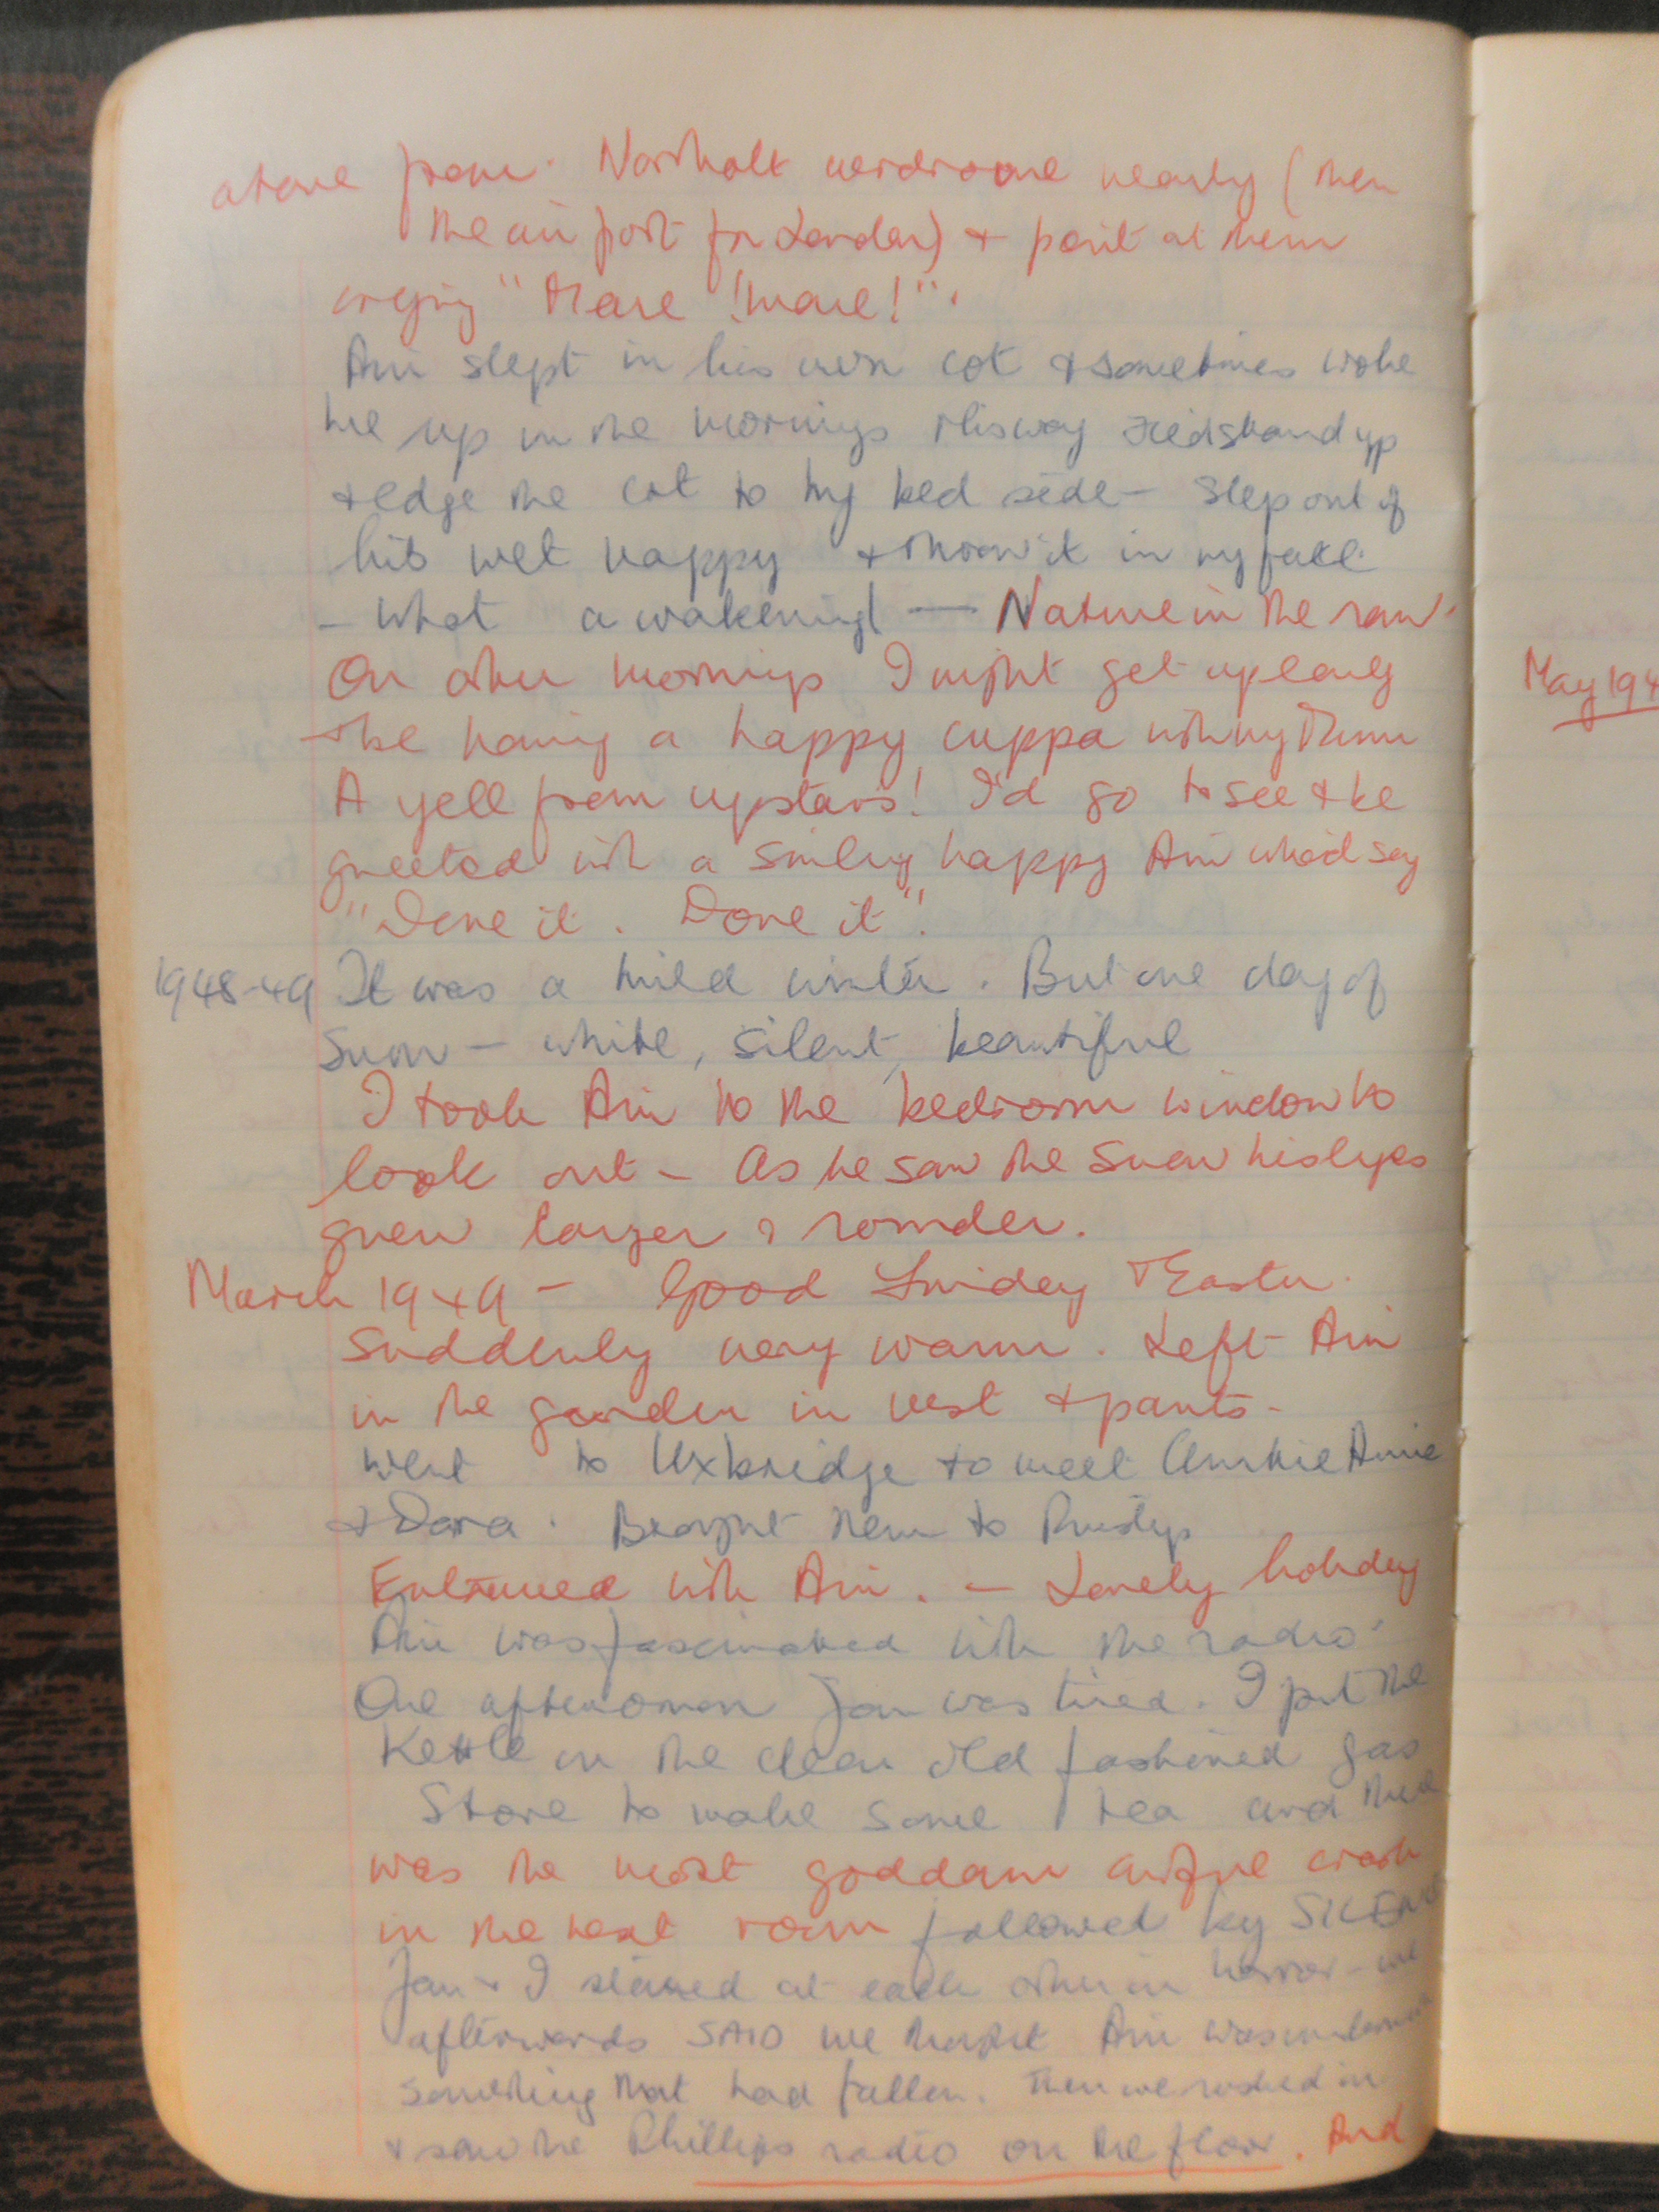 above from Northolt aerdrome nearby (then
the airport for London) + point at them
crying "More! more!".
Ari slept in his own cot & sometimes woke
me up in the mornings. His way Heidstand up
& edge the cot to my bed side – Step out of
his wet nappy & throw it in my face
– What awakening! — Nature in the raw.
On other mornings I might get up early
& be having a happy cuppa with my Mum
A yell from upstairs! I'd go to see & be
greeted with a smiling happy Ari who'd say
"Done it. Done it".
1948-49 It was a mild winter. But one day of
Snow – white, silent, beautiful
I took Ari to the bedroom window to
look out – As he saw the snow his eyes
grew larger & rounder.
March 1949 – Good Friday & Easter.
Suddenly very warm. Left Ari
in the garden in vest & pants –
Went to Uxbridge to meet Auntie Amie
& Dara. Brought them to Ruislip
Entranced with Ari. – Lovely holiday
Ari was fascinated with the radio.
One afternoon Jon was tired. I put the
Kettle on the clean old fashioned gas
Stove to make some tea and there
was the most goddam awful crash
in the next room followed by SILENCE
Jon & I stared at each other in horror – we
afterwards SAID we thought Ari was under
something that had fallen. Then we rushed in
& saw the Phillips radio on the floor. And
May 194